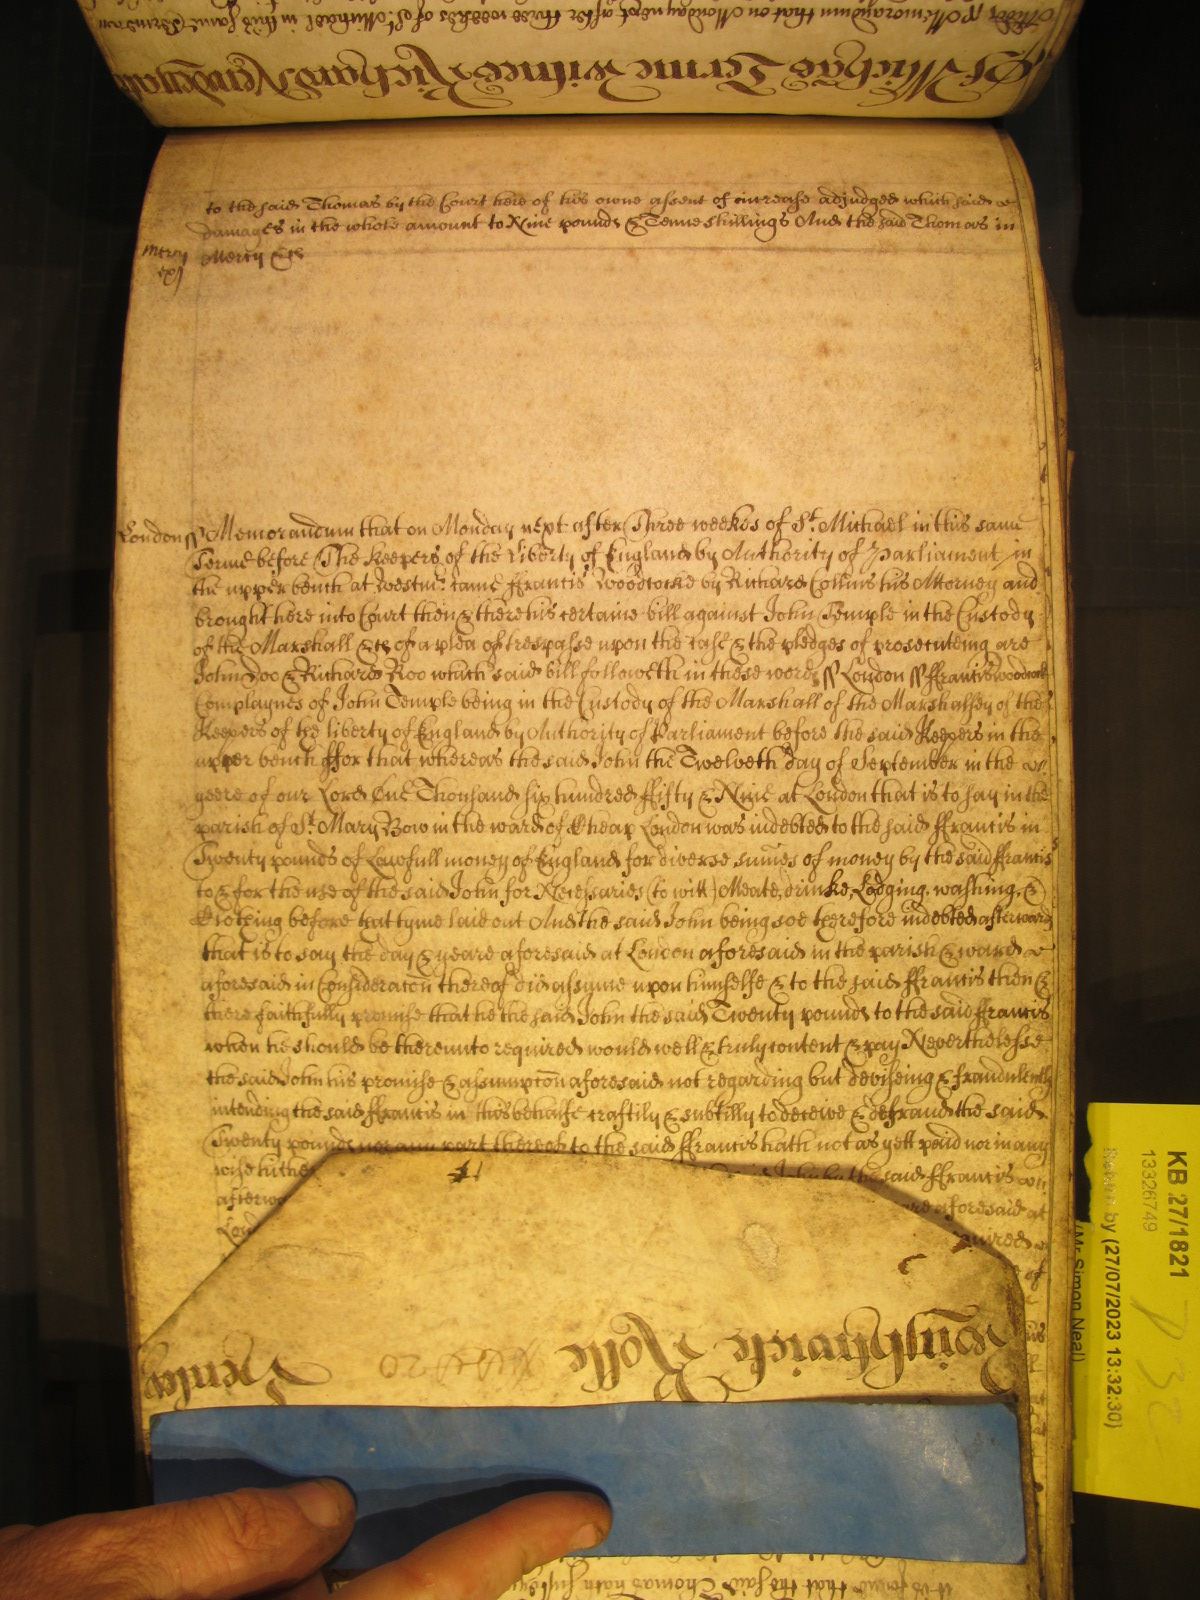 Other ss Memorandum that on Monday next after three weekes of St. Michael in this same Terme
St Michaes Terme witnes Richard Newdigate
to the said Thomas by the Court here of his owne assent of increase adjudged which said
damages in the whole amount to Nine pounds & Tenne shillings And the said Thomas in
Mercy &c
Mercy
London ss Memorandum that on Monday next after Three weekes of St. Michael in this same
Terme before The Keepers of the Liberty of England by Authority of Parliament in
the upper bench at Westmr. came ffrancis Woodcocke by Richard Collins his Attorney and
brought here into Court then & there his certaine bill against John Temple in the Custody
of the Marshall &c of a plea of trespasse upon the case & the pledges of prosecuteing are
John Doo & Richard Roo which said bill followeth in these words ss London ss ffrancis Woodcock
Complaynes of John Temple being in the Custody of the Marshall of the Marshalsey of the
Keepers of the liberty of England by Authority of Parliament before the said Keepers in the
upper bench ffor that whereas the said John the Twelveth day of September in the
yeere of our Lord One Thousand six hundred ffifty & Nine at London that is to say in the
parish of St. Mary Bow in the ward of Cheap London was indebted to the said ffrancis in
Twenty pounds of Lawfull money of England for diverse sumes of money by the said ffrancis
to & for the use of the said John for Necessaries (to witt) Meate, drinke, Lodging, washing, &
Clothing before that tyme laid out And the said John being soe therefore indebted afterward
that is to say the day & yeare aforesaid at London aforesaid in the parish & ward
aforesaid in Consideracon thereof did assume upon himselfe & to the said ffrancis then &
there faithfully promise that he the said John the said Twenty pounds to the said ffrancis
when he should be thereunto required would well & truly content & pay Neverthelesse
the said John his promise & assumpcon aforesaid not regarding but deviseing & fraudulently
intending the said ffrancis in this behalfe craftily & subtilly to deceive & defraud the said
Twenty pounds nor any part thereof to the said ffrancis hath not as yett paid nor in any
wise hither John by the said ffrancis
afterwa aforesaid at
Lon quired
of
Rolle
Henley
it is found that the said Thomas hath
KB 27/1821
13326749
Return by (27/07/2023 13:32:30)
(Mr Simon Neal)